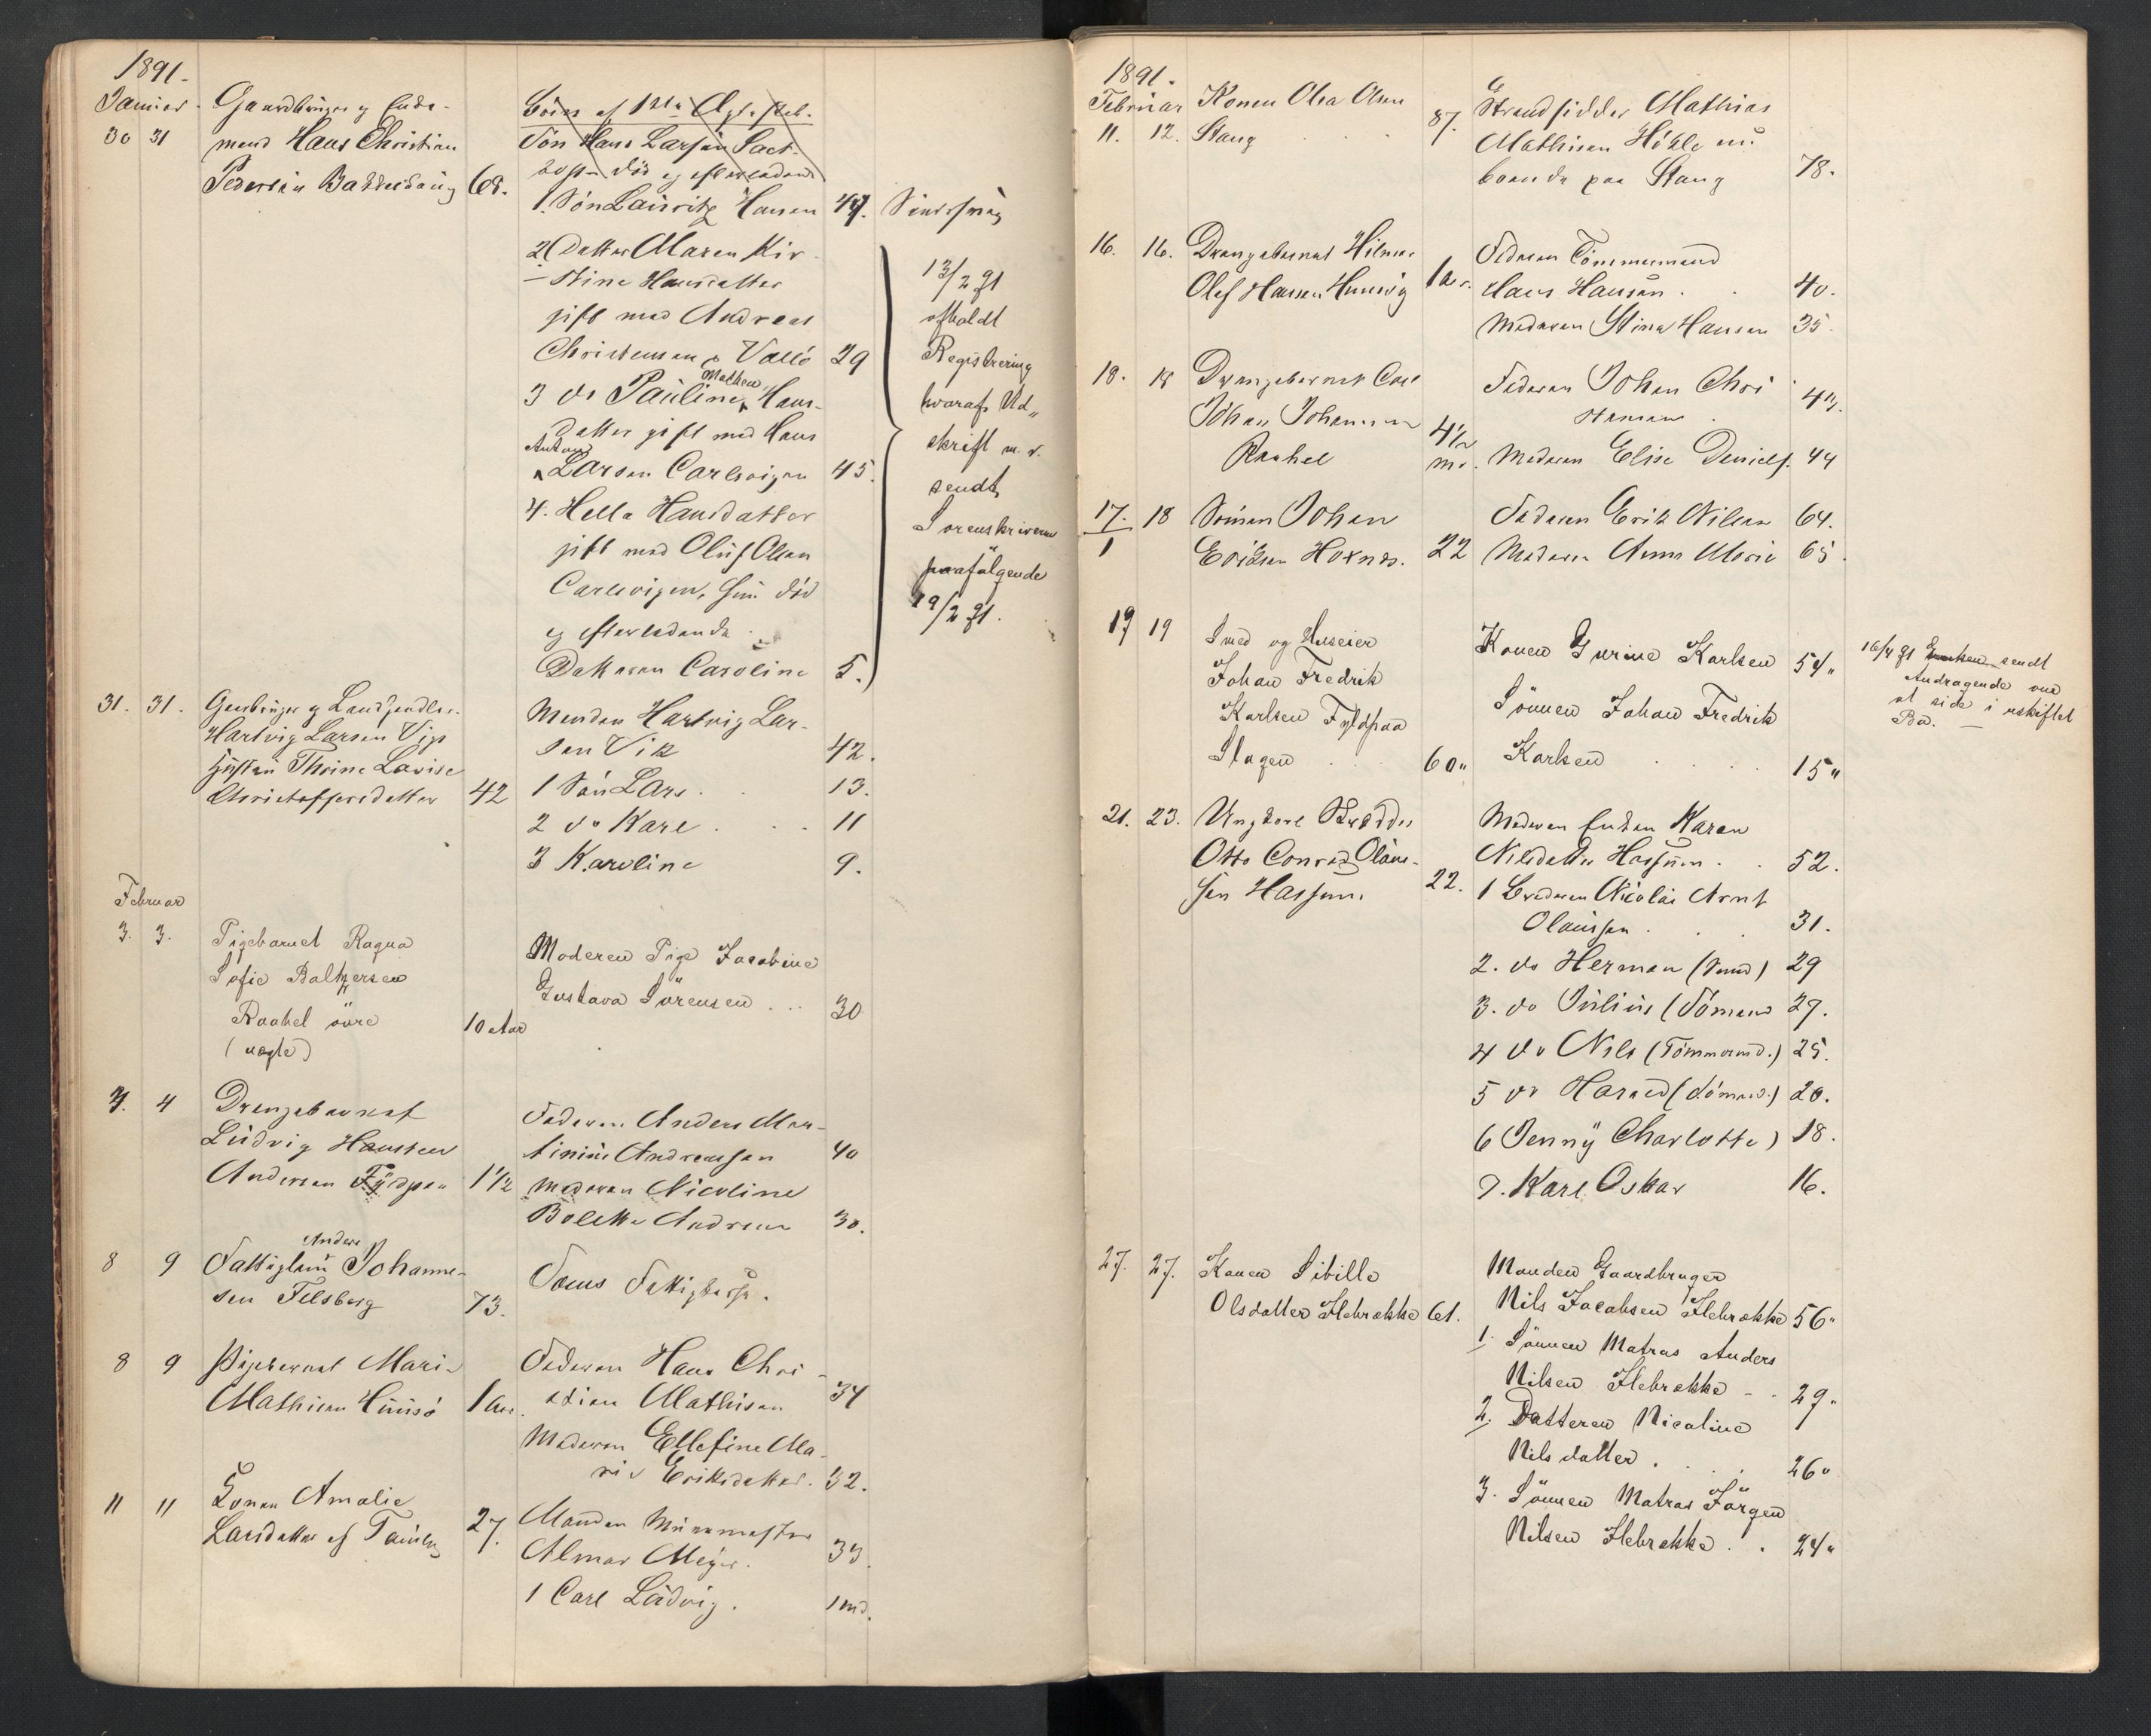 1891.
Januar
30 31 Gaardbruger og Enke-
mand Hans Christian
Pedersen Bakkeshaug 68.
Børn af 1ste Ægteskab.
Søn Hans Larsen
død efterladende
1. Søn Lauritz Hansen 44.
2 Datter Maren Kir-
stine Hansdatter
gift med Andreas
Christensen Vallö 29
3 do Pauline Mathea Hans-
datter gift med Hans
Anton
Larsen Carlsvigen 45.
4. Hella Hansdatter
gift med Oluf Olsen
Carlsvigen, hun død
efterladende
Datteren Caroline 5.
13/2 91
afholdt
Registrering
hvoraf Ud-
skrift m. v.
sendt
Sorenskriveren
paafölgende
19/2 91.
31. 31. Gaardbruger og Landhandler
Hartvig Larsen Vigs
Hustru Thrine Lovise
Christoffersdatter 42
Manden Hartvig Lar-
sen Vik 42.
1 Søn Lars . . 13.
2 do Karl . . . 11
3 Karoline 9.
Februar
3. 3. Pigebarnet Ragna
Sofie Baltzersen
Raahel övre
(uægte) 10 Aar
Moderen Pige Jacobine
Gustava Sörensen . . . 30
3. 4 Drengebarnet
Ludvig Hansteen
Andersen 1 1/2
Faderen Anders Mar-
tinius Andreassen 40
Moderen Nicoline
Bolette Andersen 30.
8 9 Fattiglem Anders Johanne-
sen Felsberg 73.
Søns Fattigkasse.
8 9 Pigebarnet Marie
Mathisen 1 Aar.
Faderen Hans Chri-
stian Mathisen 34
Moderen Ellefine Ma-
rie Eriksdatter. 32.
11 11 Konen Amalie
Larsdatter af Tønsberg 27.
Manden Murmester
Almar Meyer. 33.
1 Carl Ludvig. 1 md.
1891.
Februar
11. 12. Konen Olea Olsen
Stang . . . 87.
Strandsidder Mathias
Mathisen nu
boende paa Stang 78.
16. 16. Drengebarnet Hilmar
Olaf Hansen 1 Aar.
Faderen Tömmermand
Claus Hansen . . 40.
Moderen Stina Hansen 35.
18. 18 Drengebarnet Carl
Johan Johannesen
Raahel 4 1/2 md.
Faderen Johan Chri-
stensen . 47.
Moderen Elise Daniels. 44
17./1 18 Sönnen Johan
Eriksen Hoxnes. 22
Faderen Erik Nilsen 64.
Moderen Anne Marie 65.
19 19 Smed og Huseier
Johan Fredrik
Karlsen Fyldpaa
Slagen . . . 60"
Konen Gurine Karlsen 54"
Sönnen Johan Fredrik
Karlsen . . . . 15"
16/4 91 Enken sendt
Andragende om
at side i uskiftet
Bo. —
21. 23. Ungkarl Skrædder
Otto Conrad Olaus-
sen Hassum. 22.
Moderen Enken Karen
Nilsdatter Hassum . . 52.
1 Broderen Nicolai Arnt
Olaussen . . . 31.
2. do Herman (Smed) 29
3. do Julius (Sömand 27.
4 do Nils (Tömmermd.) 25.
5 do Harald (Sömand.) 20.
6 Jenny Charlotte) 18.
7. Karl Oskar 16.
27. 27. Konen Sibille
Olsdatter Ilebrække 61.
Manden Gaardbruger
Nils Jacobsen Ilebrække 56"
1. Sönnen Matros Anders
Nilsen Ilebrække - - 29"
2. Datteren Nicoline
Nilsdatter . . . 26"
3. Sönnen Matros Jörgen
Nilsen Ilebrække . . 24"